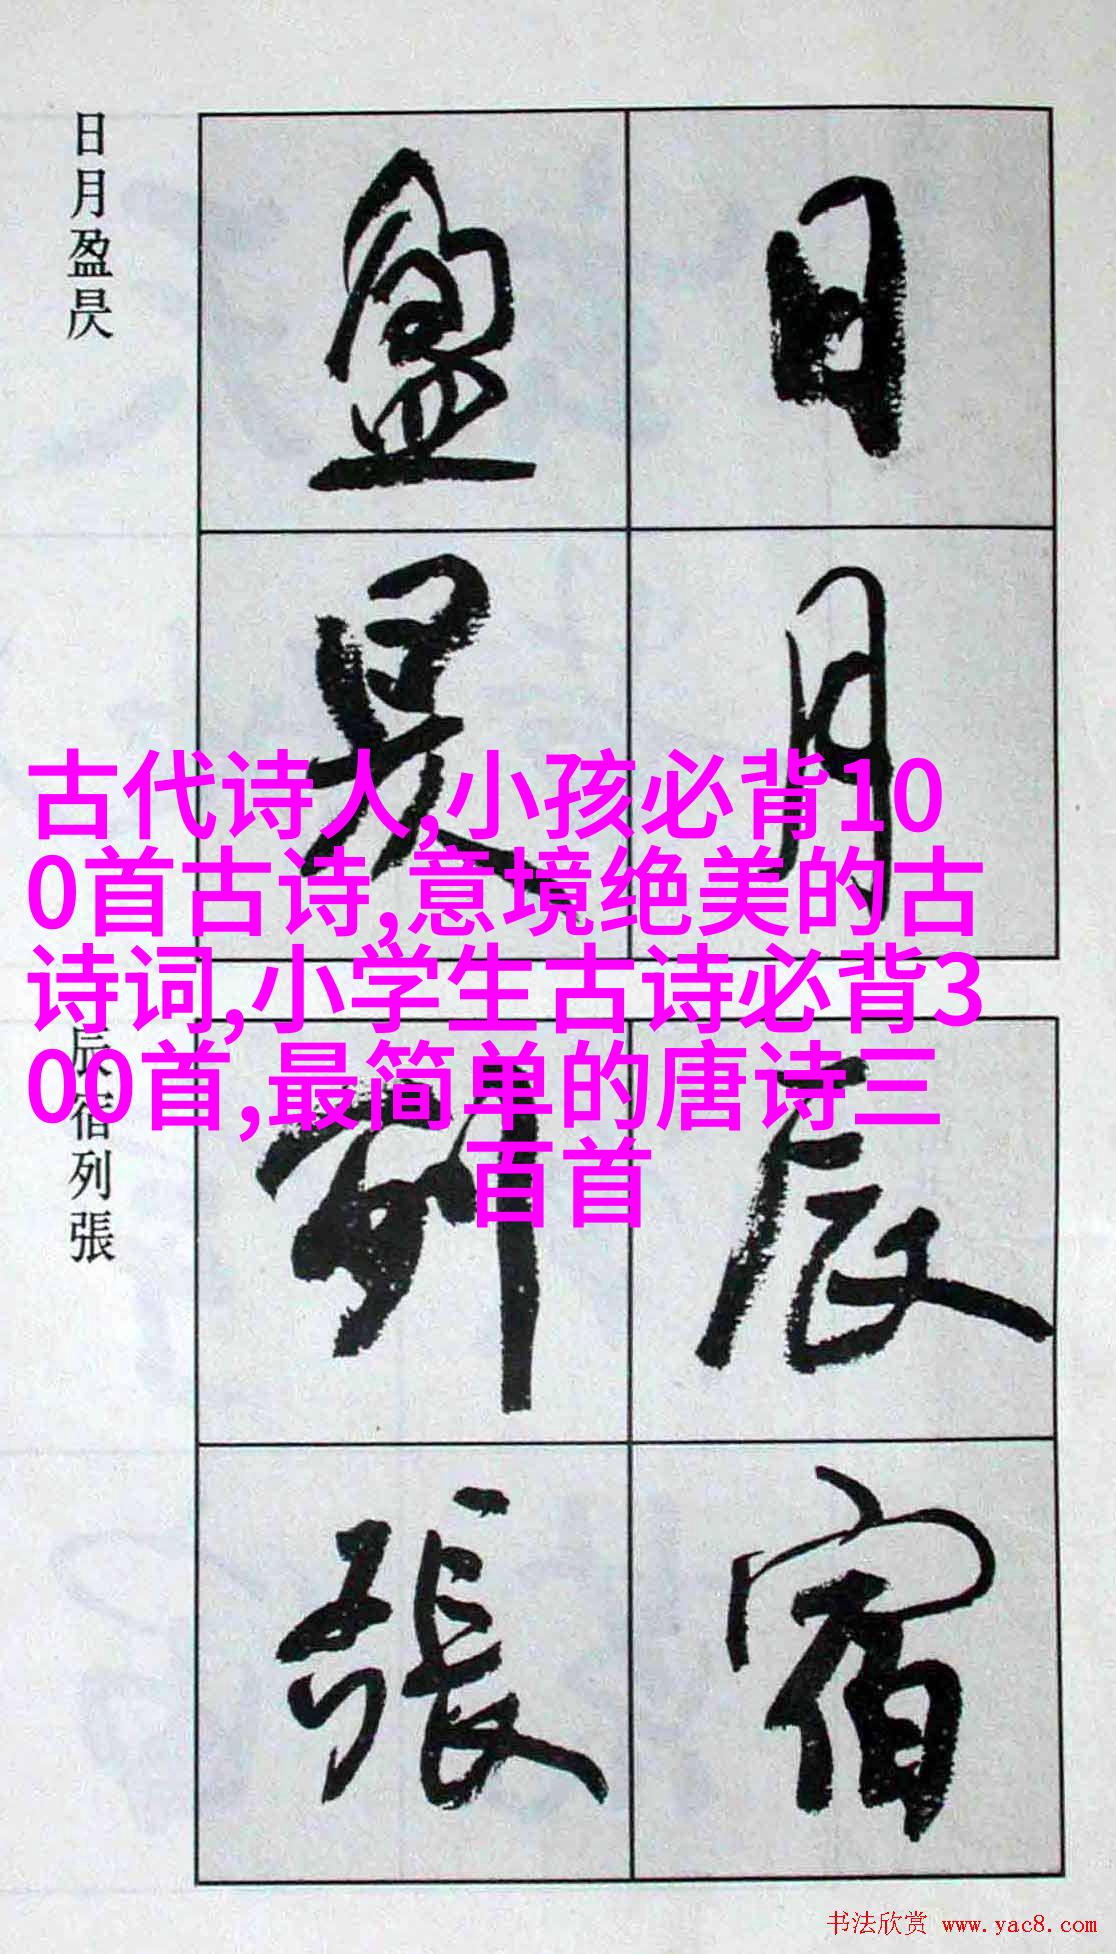 日月盈昃
日月
盈昃
古代诗人,小孩必背10
0首古诗,意境绝美的古
诗词,小学生古诗必背3
00首,最简单的唐诗三
百首
辰宿列張
辰宿
列張
书法欣赏 www.yac8.com